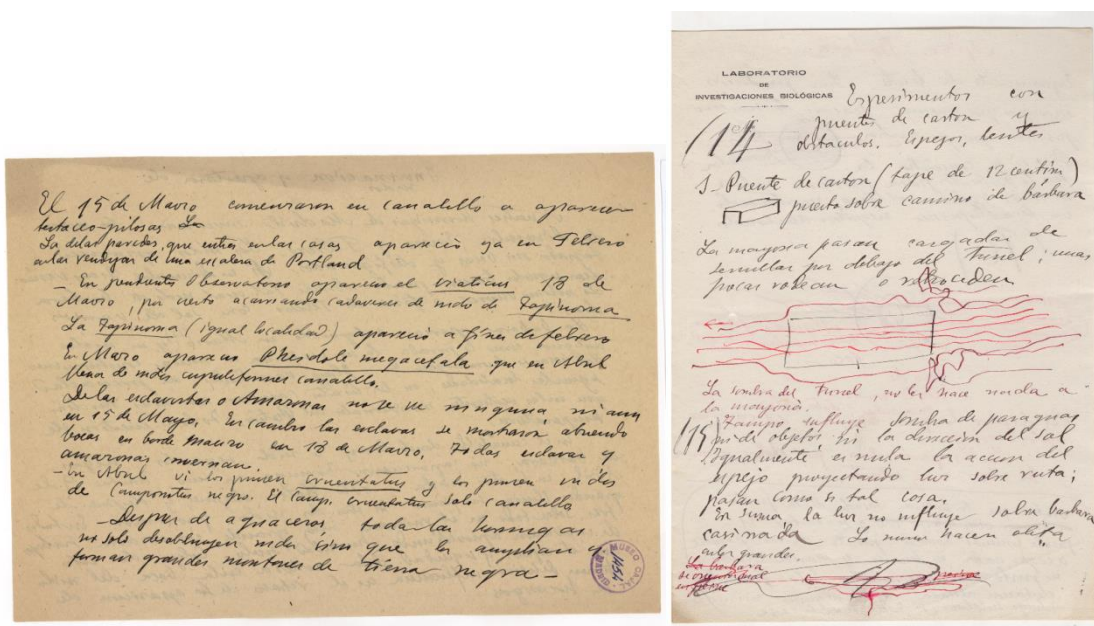 El 15 de Marzo comenzaron en canalillo a aparecer
testaceo-pilosas
La de las paredes, que entra en las casas apareció ya en Febrero
en las rendijas de una escalera de Portland
- En pendientes Observatorio aparecen el viaticus 13 de
Marzo, por cierto acarreando cadaveres de nidos de Tapinoma
La Tapinoma (igual localidad) apareció a fines de febrero
En Marzo aparecen Pheidole megacefala que en Abril
llena de nidos cupuliformes canalillo.
De las esclavistas o Amazonas no se ve ninguna ni aun
en 15 de Mayo. En cambio las esclavas se mostraron abriendo
bocas en borde macizo en 13 de Marzo. Todas esclavas y
amazonas invernan.
- En Abril vi los primeros cruentatus y los primeros nidos
de Camponotus negro. El Camp. cruentatus solo canalillo
- Despues de aguaceros todas las hormigas
no solo desobstruyen nidos sino que los amplian y
forman grandes montones de tierra negra -
MUSEO CAJAL
MADRID
LABORATORIO
DE
INVESTIGACIONES BIOLÓGICAS
Experimentos con
(14 puentes de carton y
obstaculos. Espejos, lentes
1- Puente de carton (tape de 12 centim)
puesto sobre camino de bárbara
La mayoria pasan cargadas de
semillas por debajo del tunel; unas
pocas rodean o retroceden
La sombra del tunel, no les hace nada a
la mayoria.
Tampo influye sombra de paraguas
(15) ni de objetos ni la direccion del sol
Igualmente es nula la accion del
espejo proyectando luz sobre ruta;
pasan como si tal cosa.
En suma, la luz no influye sobre barbara
casi nada
La barbara